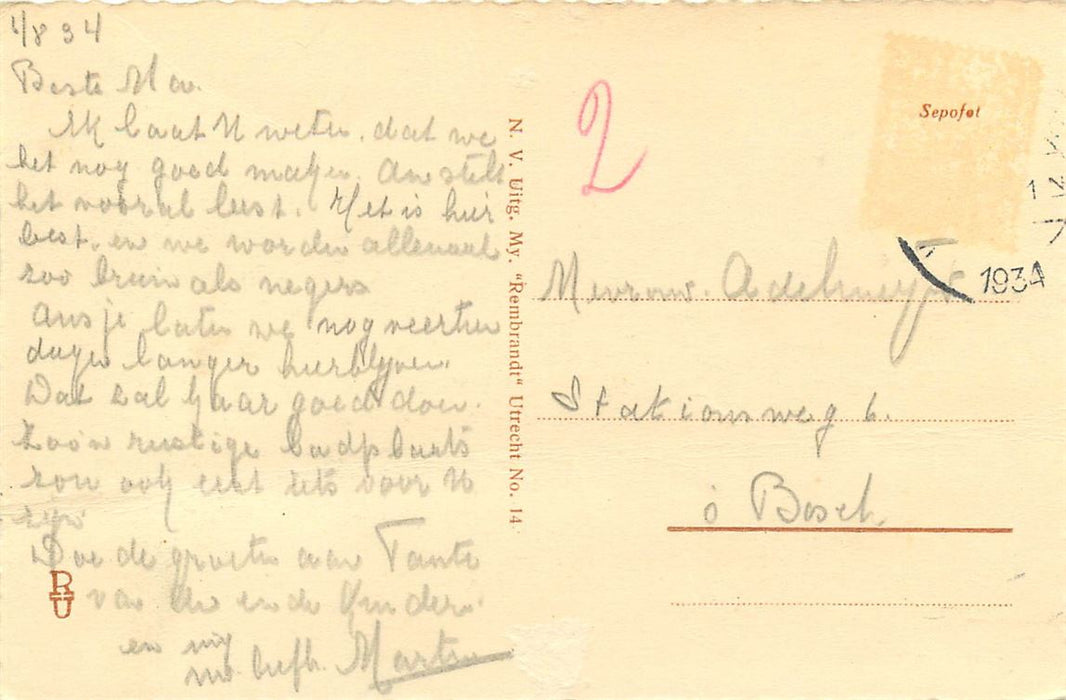 1/8 34
Beste Moe.
Ik laat U weten, dat we
het nog goed maken. An stelt
het vooral best. Het is hier
best, en we worden allemaal
zoo bruin als negers
Ansje laten we nog veertien
dagen langer hier blijven.
Dat zal haar goed doen.
Zoo'n rustige badplaats
zou ook eest iets voor U
zijn
Doe de groeten aan Tante
van An en de Kinderen
en mij
liefh. Martin
RU
N. V. Uitg. My. "Rembrandt" Utrecht No. 14
2
Sepofot
1
1934
Mevrouw.
Stationsweg 6.
Bosch.